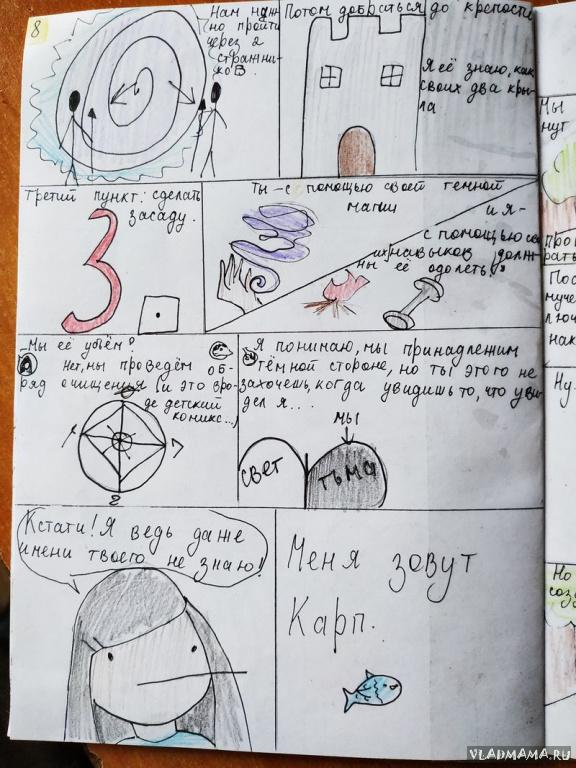 8
Нам нуж
но пройти
через 2
стражни-
ков.
Потом добраться до крепости
Я её знаю, как
своих два кры-
ла
Третий пункт: сделать
засаду.
3
Ты - с помощью своей темной
магии
и я-
с помощью
навыков долж-
ны её одолеть!
Мы её убьём?
Нет, мы проведём об-
ряд очищенья (и это вро-
де детский
комикс...)
Я понимаю, мы принадлежим
тёмной стороне, но ты этого не
захочешь, когда увидишь то, что уви-
дел я...
мы
свет
тьма
Кстати! Я ведь даже
имени твоего не знаю!
Меня зовут
Карп.
Мы
нут
Пос
муче
люч
нак
Ну.
Но
созд
VLADMAMA.RU